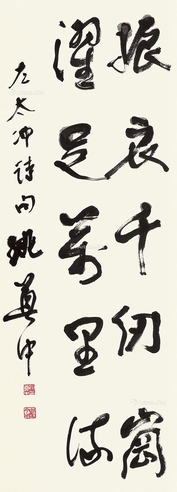 振衣千仞崗
濯足萬里流
左太冲詩句 姚奠中